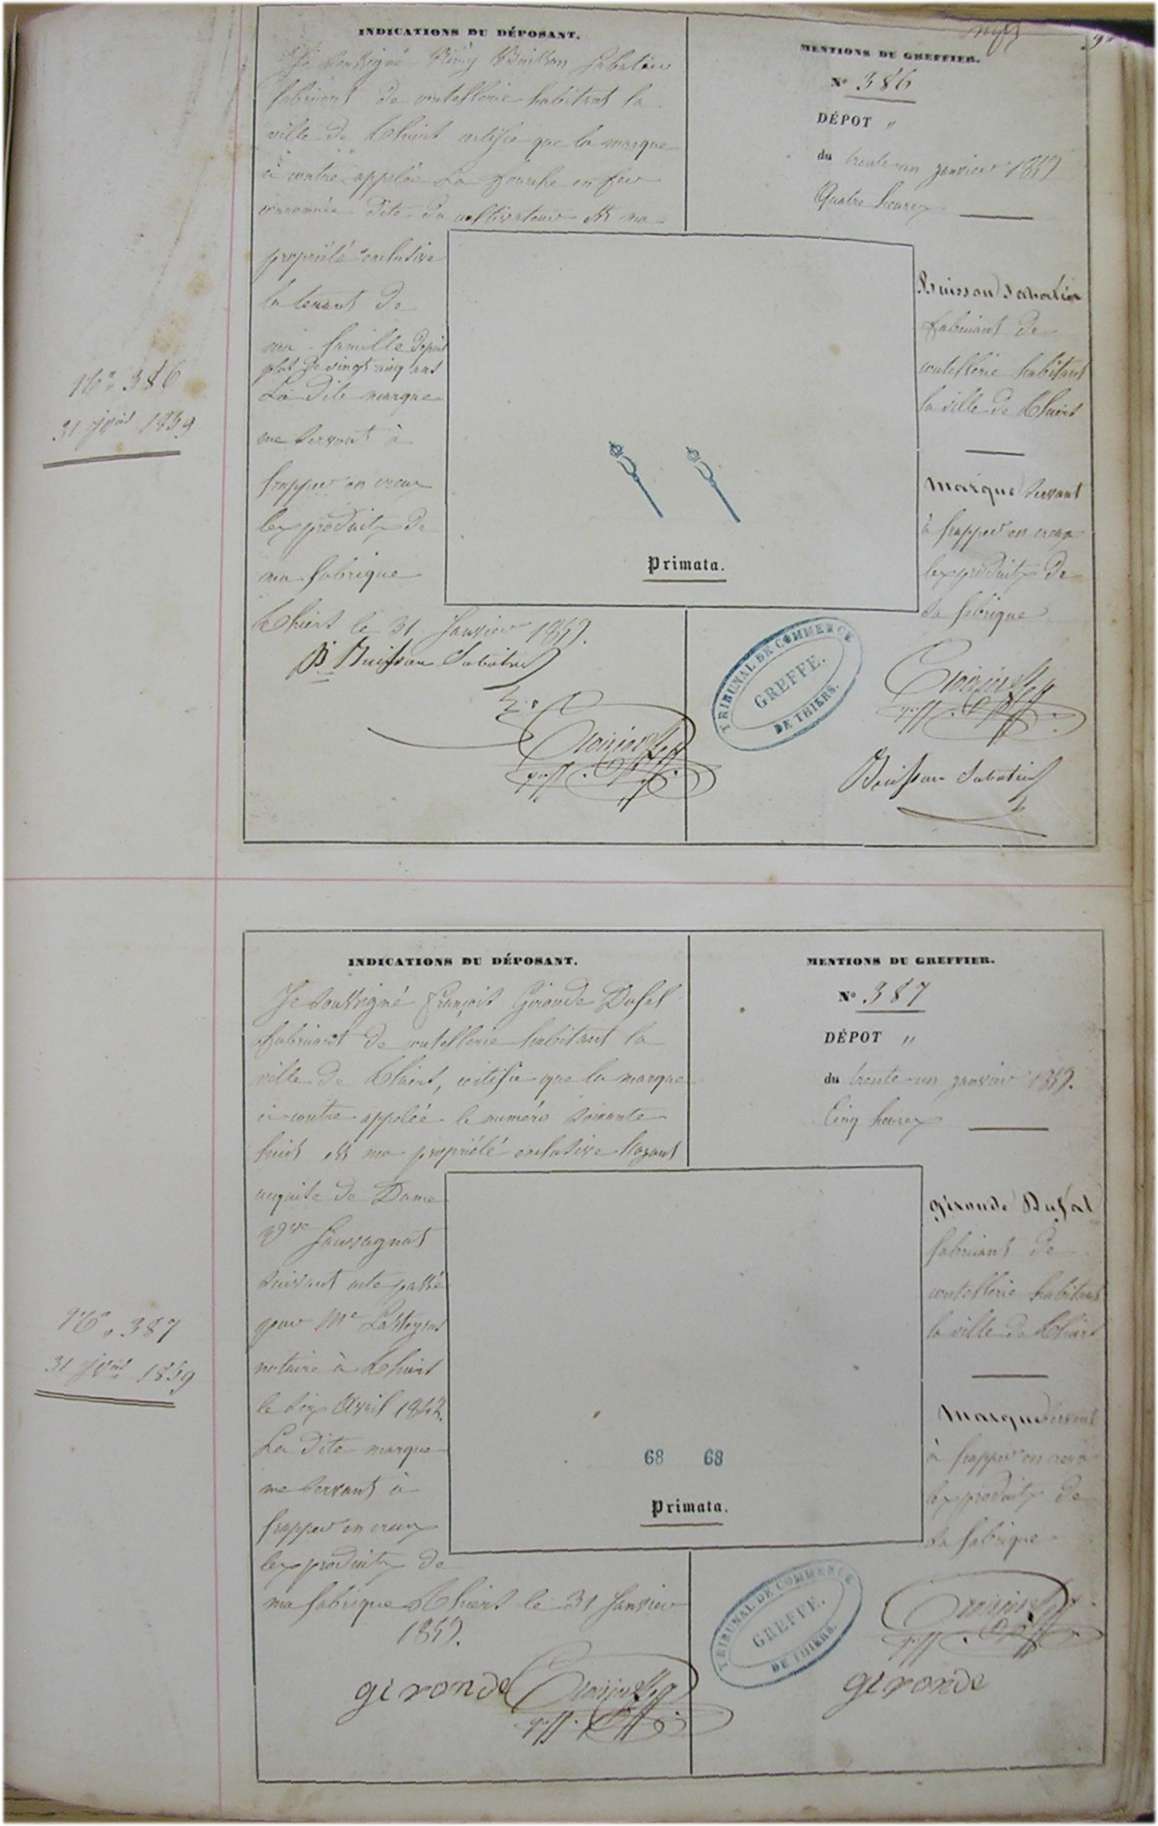 INDICATIONS DU DÉPOSANT.
Je soussigné Rémy Buisson Sabatier
fabricant de coutellerie habitant la
ville de Thiers certifie que la marque
ci contre appelée La fourche en fer
couronnée dite du cultivateur est ma
propriété exclusive
la tenant de
ma famille depuis
plus de vingt cinq ans
La dite marque
me servant à
frapper en creux
les produits de
ma fabrique
Thiers le 31 Janvier 1859.
Buisson Sabatier
MENTIONS DU GREFFIER.
No 386
DÉPOT "
du trente-un janvier 1859
Quatre heures
Buisson Sabatier
fabricant de
coutellerie habitant
la ville de Thiers
Marque servant
à frapper en creux
les produits de
sa fabrique
Buisson Sabatier
Primata.
TRIBUNAL DE COMMERCE
GREFFE.
DE THIERS.
No 386
31 jvier 1859
INDICATIONS DU DÉPOSANT.
Je soussigné François Gironde Dufal
fabricant de coutellerie habitant la
ville de Thiers, certifie que la marque
ci contre appelée le numéro soixante
huit est ma propriété exclusive l'ayant
acquise de Dame
Vve
suivant acte passé
par Me
notaire à Thiers
le six Avril
La dite marque
me servant à
frapper en creux
les produits de
ma fabrique Thiers le 31 Janvier
1859.
gironde
MENTIONS DU GREFFIER.
No 387
DÉPOT "
du trente-un janvier 1859.
Cinq heures
Gironde Dufal
fabricant de
coutellerie habitant
la ville de Thiers
Marque servant
à frapper en creux
les produits de
sa fabrique
gironde
68 68
Primata.
TRIBUNAL DE COMMERCE
GREFFE.
DE THIERS.
No 387
31 jvier 1859